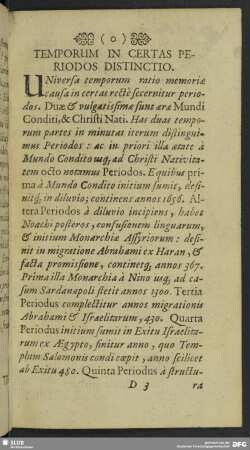 ( o )
TEMPORUM IN CERTAS PE-
RIODOS DISTINCTIO.
Universa temporum ratio memoriæ
causa in certas rectè secernitur perio-
dos. Duæ & vulgatissimæ sunt æræ Mundi
Conditi, & Christi Nati. Has duas tempo-
rum partes in minutas iterum distingui-
mus Periodos: ac in priori illa ætate à
Mundo Condito usq; ad Christi Nativita-
tem octo notamus Periodos. E quibus pri-
ma à Mundo Condito initium sumit, desi-
nitq; in diluvio; continens annos 1656. Al-
tera Periodos à diluvio incipiens, habet
Noachi posteros, confusionem linguarum,
& initium Monarchiæ Assyriorum: desi-
nit in migratione Abrahami ex Haran, &
facta promissione, continetq; annos 367.
Prima illa Monarchia à Nino usq; ad ca-
sum Sardanapali stetit annos 1300. Tertia
Periodus complectitur annos migrationis
Abrahami & Israelitarum, 430. Quarta
Periodus initium sumit in Exitu Israelita-
rum ex Ægypto, finitur anno, quo Tem-
plum Salomonis condi cœpit, anno scilicet
ab Exitu 480. Quinta Periodus à structu-
D 3 ra
SLUB
DFG